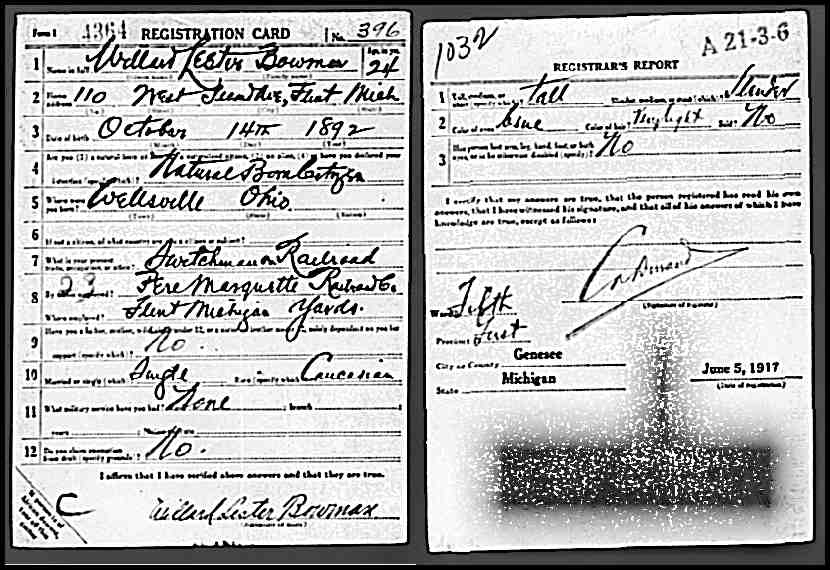 Form 1 4364 REGISTRATION CARD No. 396
1 Name in full Willard Lester Bowman Age, in yrs. 24
2 Home address 110 West Ave, Flint Mich
3 Date of birth October 14th 1892
(Month) (Day) (Year)
4 Are you (1) a natural born citizen, (2) a naturalized citizen, (3) an alien, (4) or have you declared your
intention (specify which)? Natural Born Citizen
5 Where were you born? Wellsville Ohio
(Town) (State) (Nation)
6 If not a citizen, of what country are you a citizen or subject?
7 What is your present trade, occupation, or office? Switchman on Railroad
8 By whom employed? 23 Pere Marquette Railroad Co
Where employed? Flint Michigan Yards.
9 Have you a father, mother, wife, child under 12, or a sister or brother under 12, solely dependent on you for
support (specify which)? No.
10 Married or single (which)? Single Race (specify which)? Caucasian
11 What military service have you had? None branch
years
12 Do you claim exemption from draft (specify grounds)? No.
I affirm that I have verified above answers and that they are true.
C
Willard Lester Bowman
(Signature or mark)
1032 A 21-3-6
REGISTRAR'S REPORT
1 Tall, medium, or short (specify which)? Tall Slender, medium, or stout (which)? Slender
2 Color of eyes? Blue Color of hair? Bald? No
3 Has person lost arm, leg, hand, foot, or both eyes, or is he otherwise disabled (specify)? No
I certify that my answers are true, that the person registered has read his own
answers, that I have witnessed his signature, and that all of his answers of which I have
knowledge are true, except as follows:
(Signature of registrar)
Ward Fifth
Precinct First
City or County Genesee
State Michigan June 5, 1917
(Date of registration)